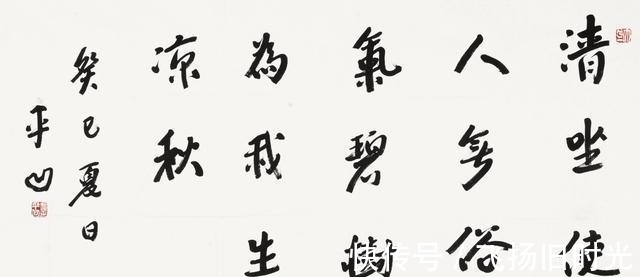 清坐使
人無俗
氣碧樹
為我生
凉秋
癸巳夏日
平凹
快传号 / 飞扬旧时光